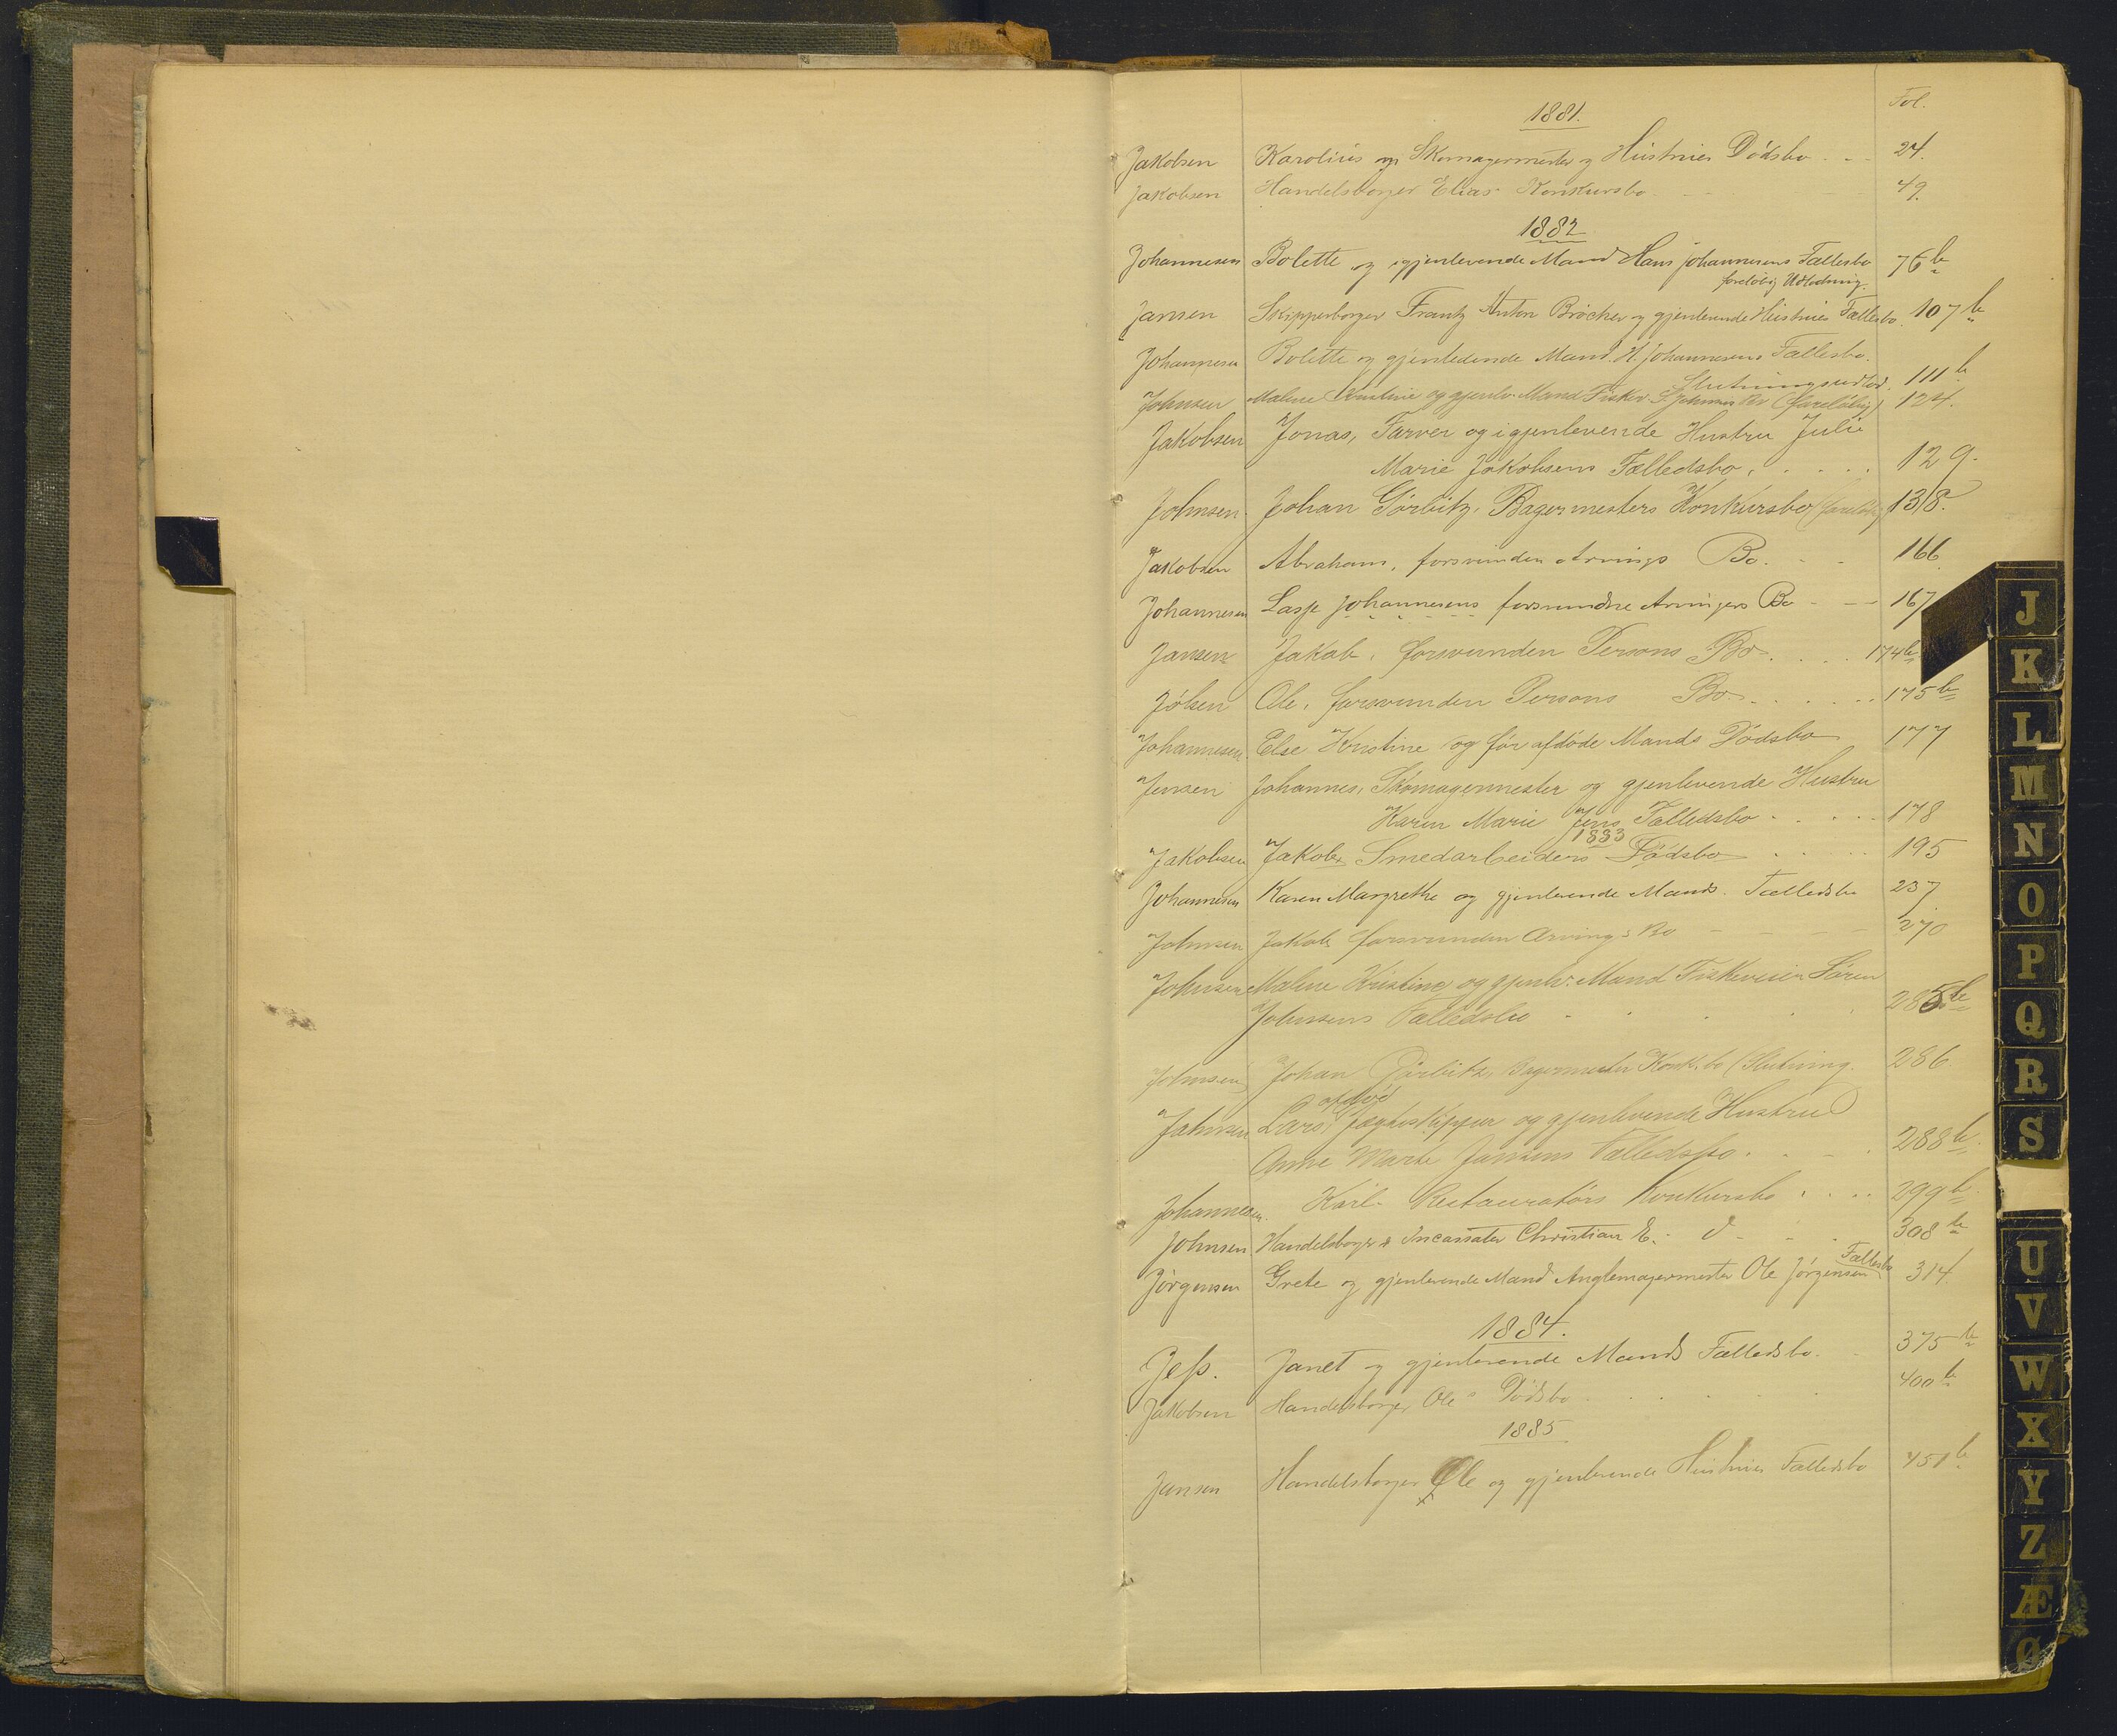 Fol.
1881.
Jakobsen Karolius og Skomagermester og Hustrues Dödsbo 24.
Jakobsen Handelsborger Elias Konkursbo 49.
1882
Johannesen Bolette og igjenlevende Mand Hans Johannesens Fællesbo 76b
foreløbig Udlodning.
Jansen Skipperborger Frantz Anton Bröcker og gjenlevende Hustrues Fællesbo. 107b
Johannesen Bolette og gjenlevende Mand H. Johannesens Fællesbo.
Slutningsudlod. 111b
Johnsen Malene Kristine og gjenlv. Mand Fisker S Johnsens Bo (foreløbig) 124.
Jakobsen Jonas, Farver og igjenlevende Hustru Julie
Marie Jakobsens Fælledsbo. 129.
Johnsen. Johan Görbitz, Bagermesters Konkursbo (foreløbig) 138.
Jakobsen Abraham, forsvunden Arvings Bo. 166.
Johannesen Lasse Johannesens forsvundne Arvingers Bo 167
Jansen Jakob, forsvunden Persons Bo. 174b
Jólsen Ole, forsvunden Persons Bo. 175b
Johannesen Else Kristine og før afdöde Mands Dödsbo 177
Jensen Johannes, Skomagermester og gjenlevende Hustru
Karen Marie Jens Fælledsbo 178
1883
Jakobsen Jakob, Smedarbeiders Dödsbo 195
Johannesen Karen Margrethe og gjenlevende Mands Fælledsbo 237
Johnsen Jakob forsvunden Arvings Bo 270
Johnsen Malene Kristine og gjenlv. Mand Fiskeveier Sören
Johnsens Fælledsbo 285b
Johnsen Johan Görbitz, Bagermester Konk.bo (Slutning. 286
afdød
Johnsen Lars Jægteskipper og gjenlevende Hustru
Anne Marte Jansens Fælledsbo. 288b
Johannesen. Karl Restauratörs Konkursbo 299b
Johnsen Handelsborger & Incassator Christian E. 308b
Fællesbo
Jörgensen Grete og gjenlevende Mand Anglemagermester Ole Jörgensen 314.
1884.
Jess. Janet og gjenlevende Mands Fælledsbo. 375b
Jakobsen Handelsborger Ole Dödsbo 400b
1885
Jansen Handelsborger Ole og gjenlevende Hustrues Fælledsbo 451b
J
K
L
M
N
O
P
Q
R
S
U
V
W
X
Y
Z
Æ
Ø